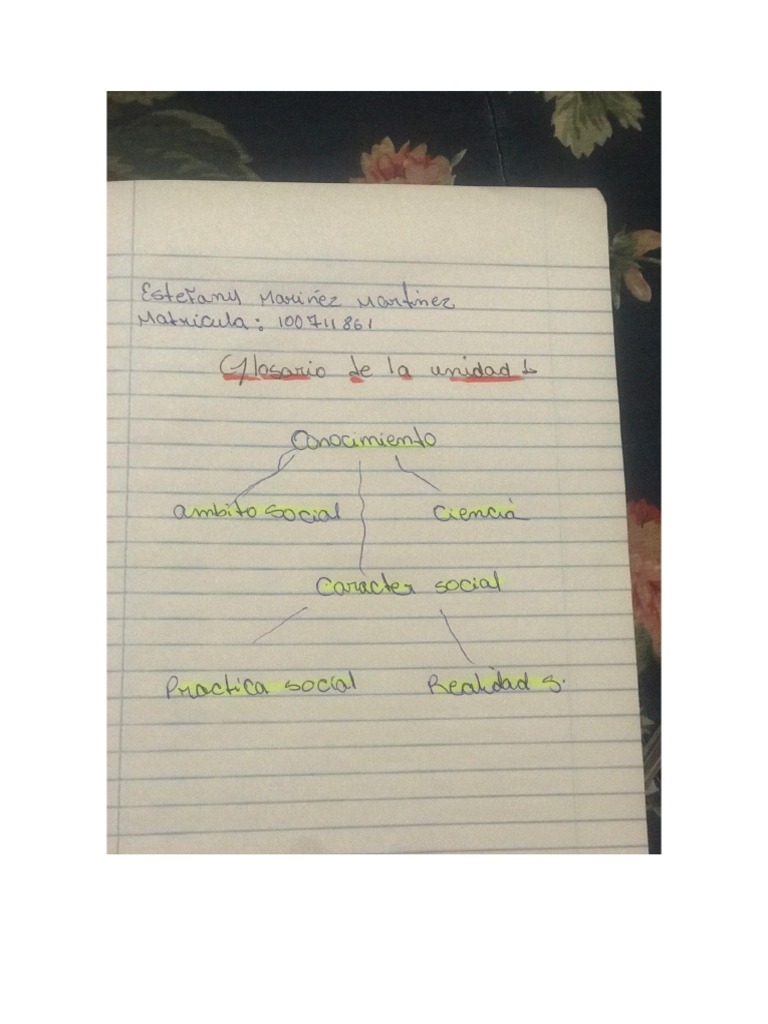 Estefany Mariñez Martinez
Matricula: 100711861
Glosario de la unidad 1
Conocimiento
ambito social Ciencia
Caracter social
Practica social Realidad s.